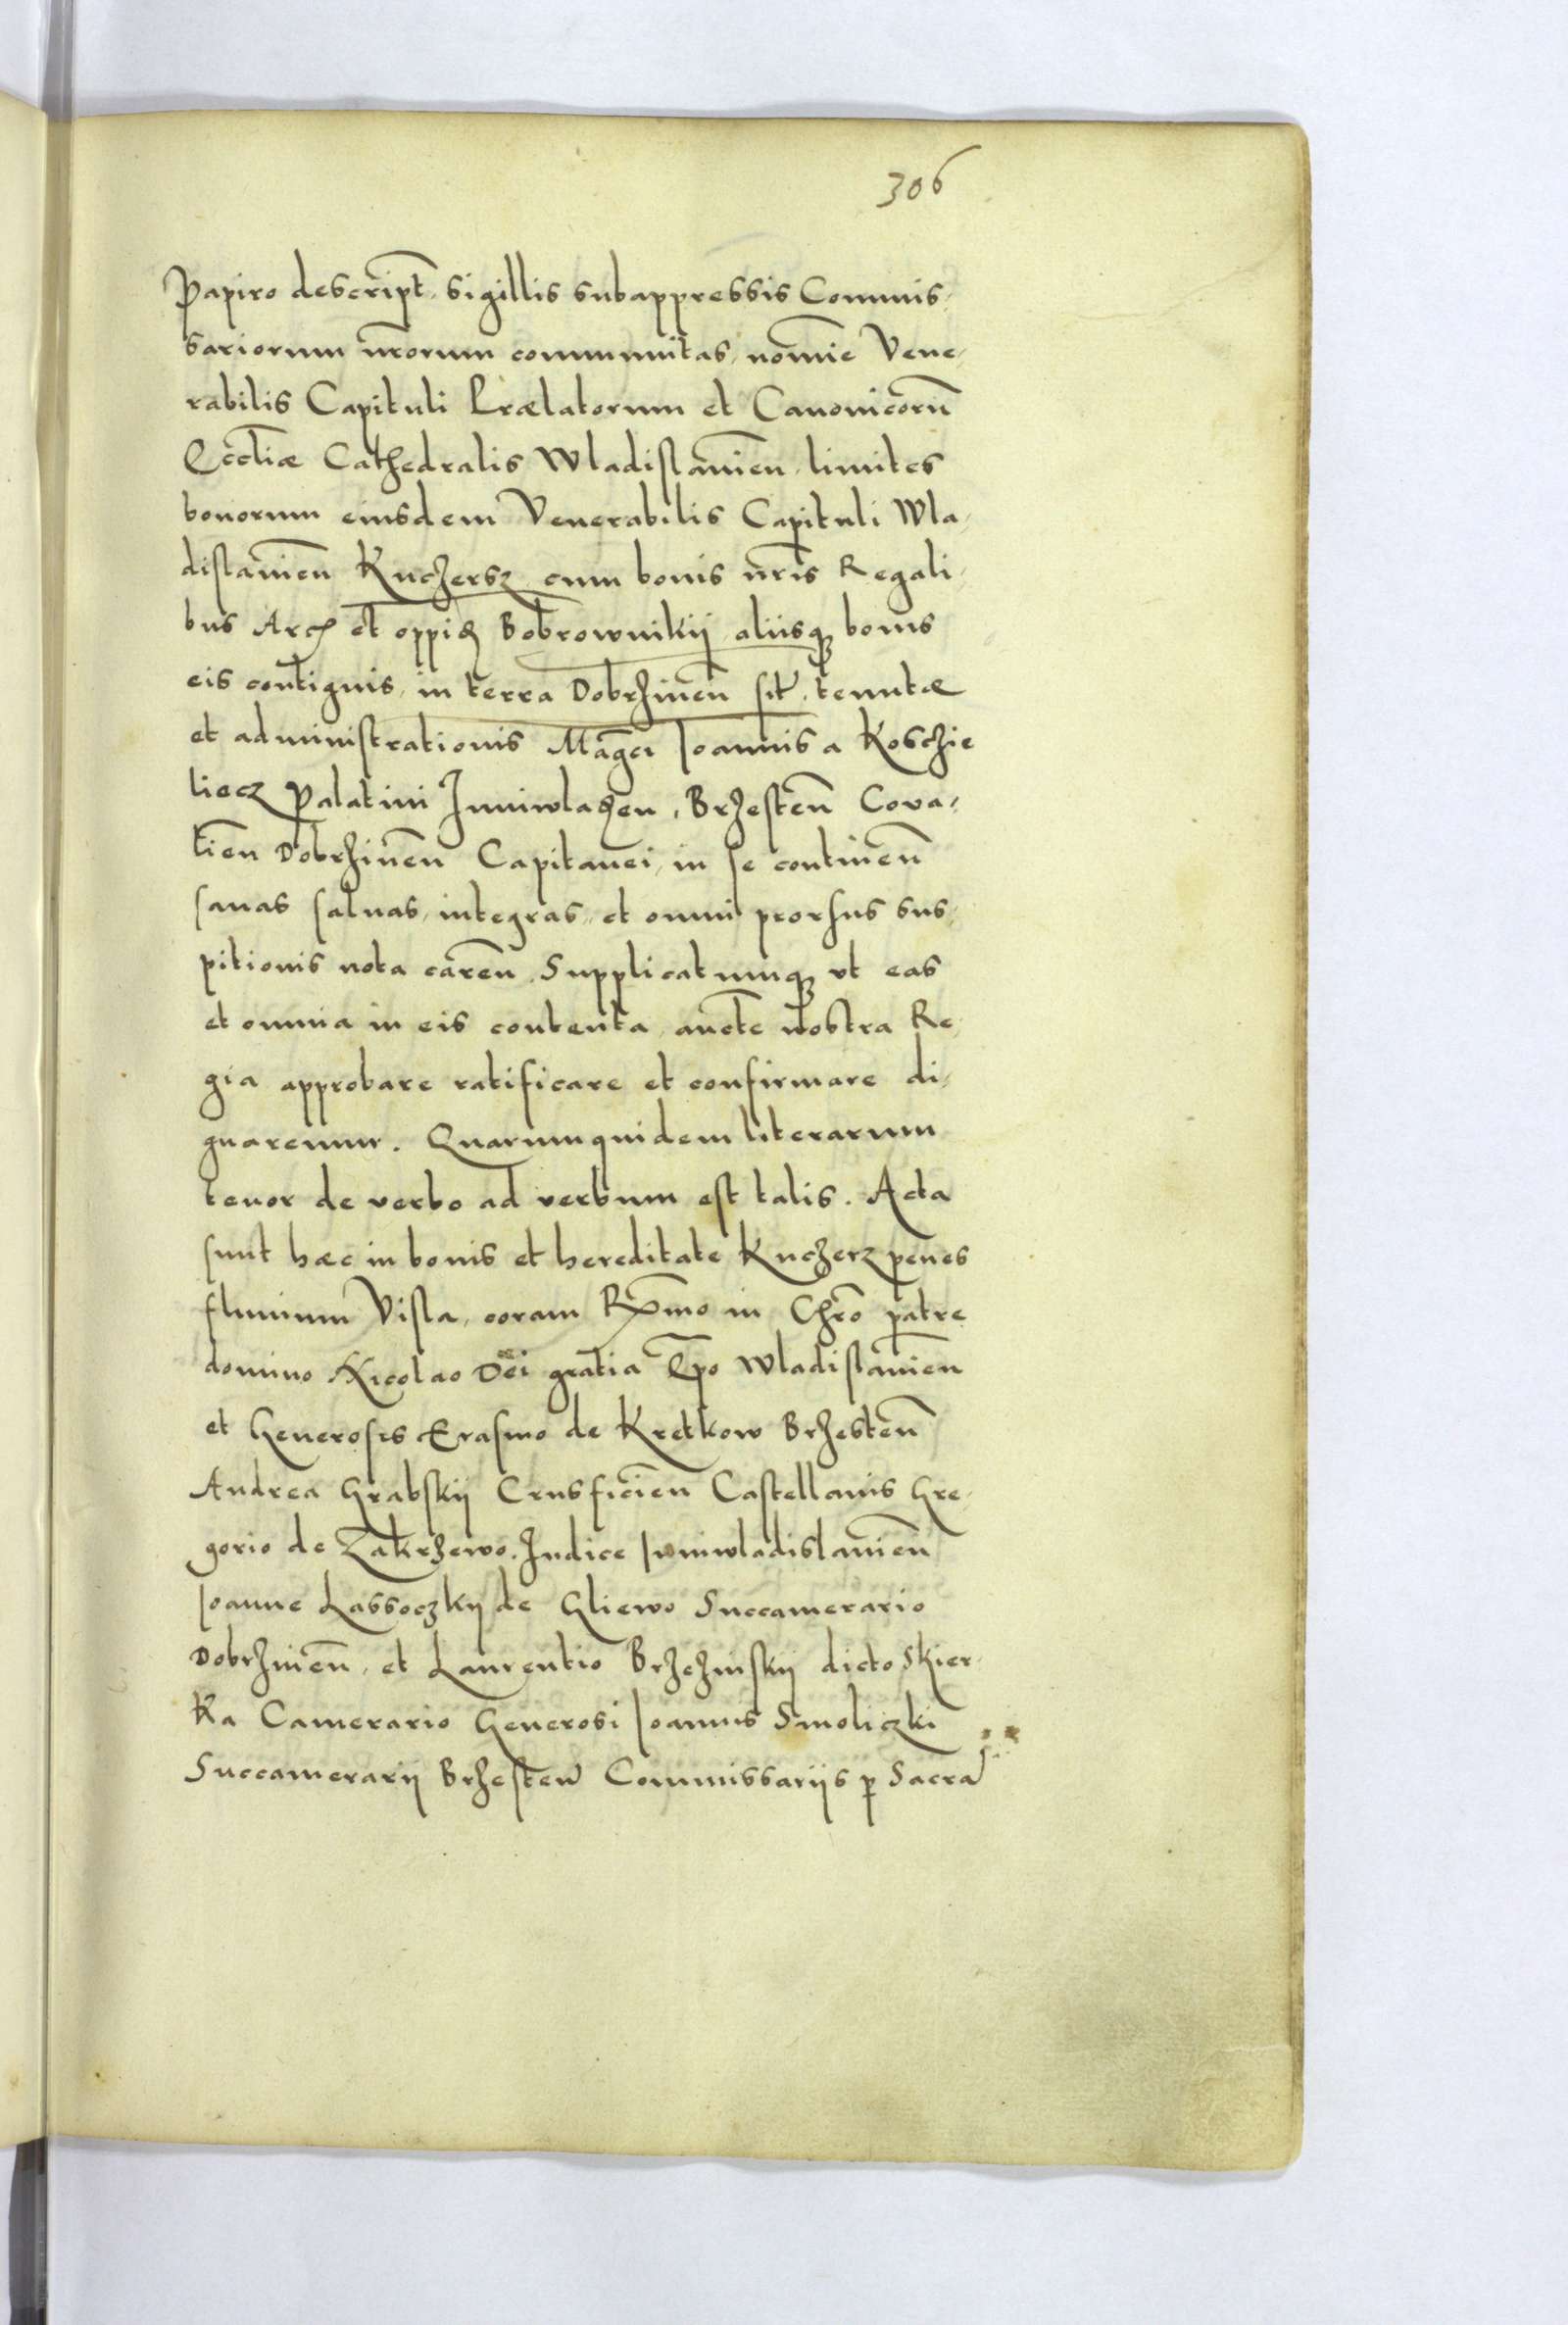 306
Papiro descript. sigillis subappressis Commis-
sariorum nrorum communitas, nomie Vene-
rabilis Capituli Prælatorum et Canonicorū
Eccliæ Cathedralis Wladislavien. limites
bonorum eiusdem Venerabilis Capituli Wla-
dislavien Kuczersz cum bonis nris Regali-
bus Arc et oppid Bobrownikij aliisq bonis
eis contiguis, in terra Dobrzinen sit. tenutæ
et administrationis Magci Ioannis a Koschie
liecz Palatini Iuniwladien, Brzesten Cova-
lien Dobrzinen Capitanei, in se continen
sanas salvas, integras, et omni prorsus sus-
pitionis nota caren. Supplicatumq vt eas
et omnia in eis contenta, aucte nostra Re-
gia approbare ratificare et confirmare di-
gnaremur. Quarumquidem literarum
tenor de verbo ad verbum est talis. Acta
sunt hæc in bonis et hereditate Kuczerz penes
fluvium Visla, coram Rmo in Chro patre
domino Nicolao Dei gratia Epo Wladislavien
et Generosis Erasmo de Kretkow Brzesten
Andrea Grabskij Crusficien Castellanis Gre-
gorio de Zakrzewo. Iudice Iuniwladislavien
Ioanne Lassoczkij de Gliewo Succamerario
Dobrzinen, et Laurentio Brzezinskij dicto Skier-
ka Camerario Generosi Ioannis Smoliczki
Succamerarij Brzesten Commissarijs p Sacra